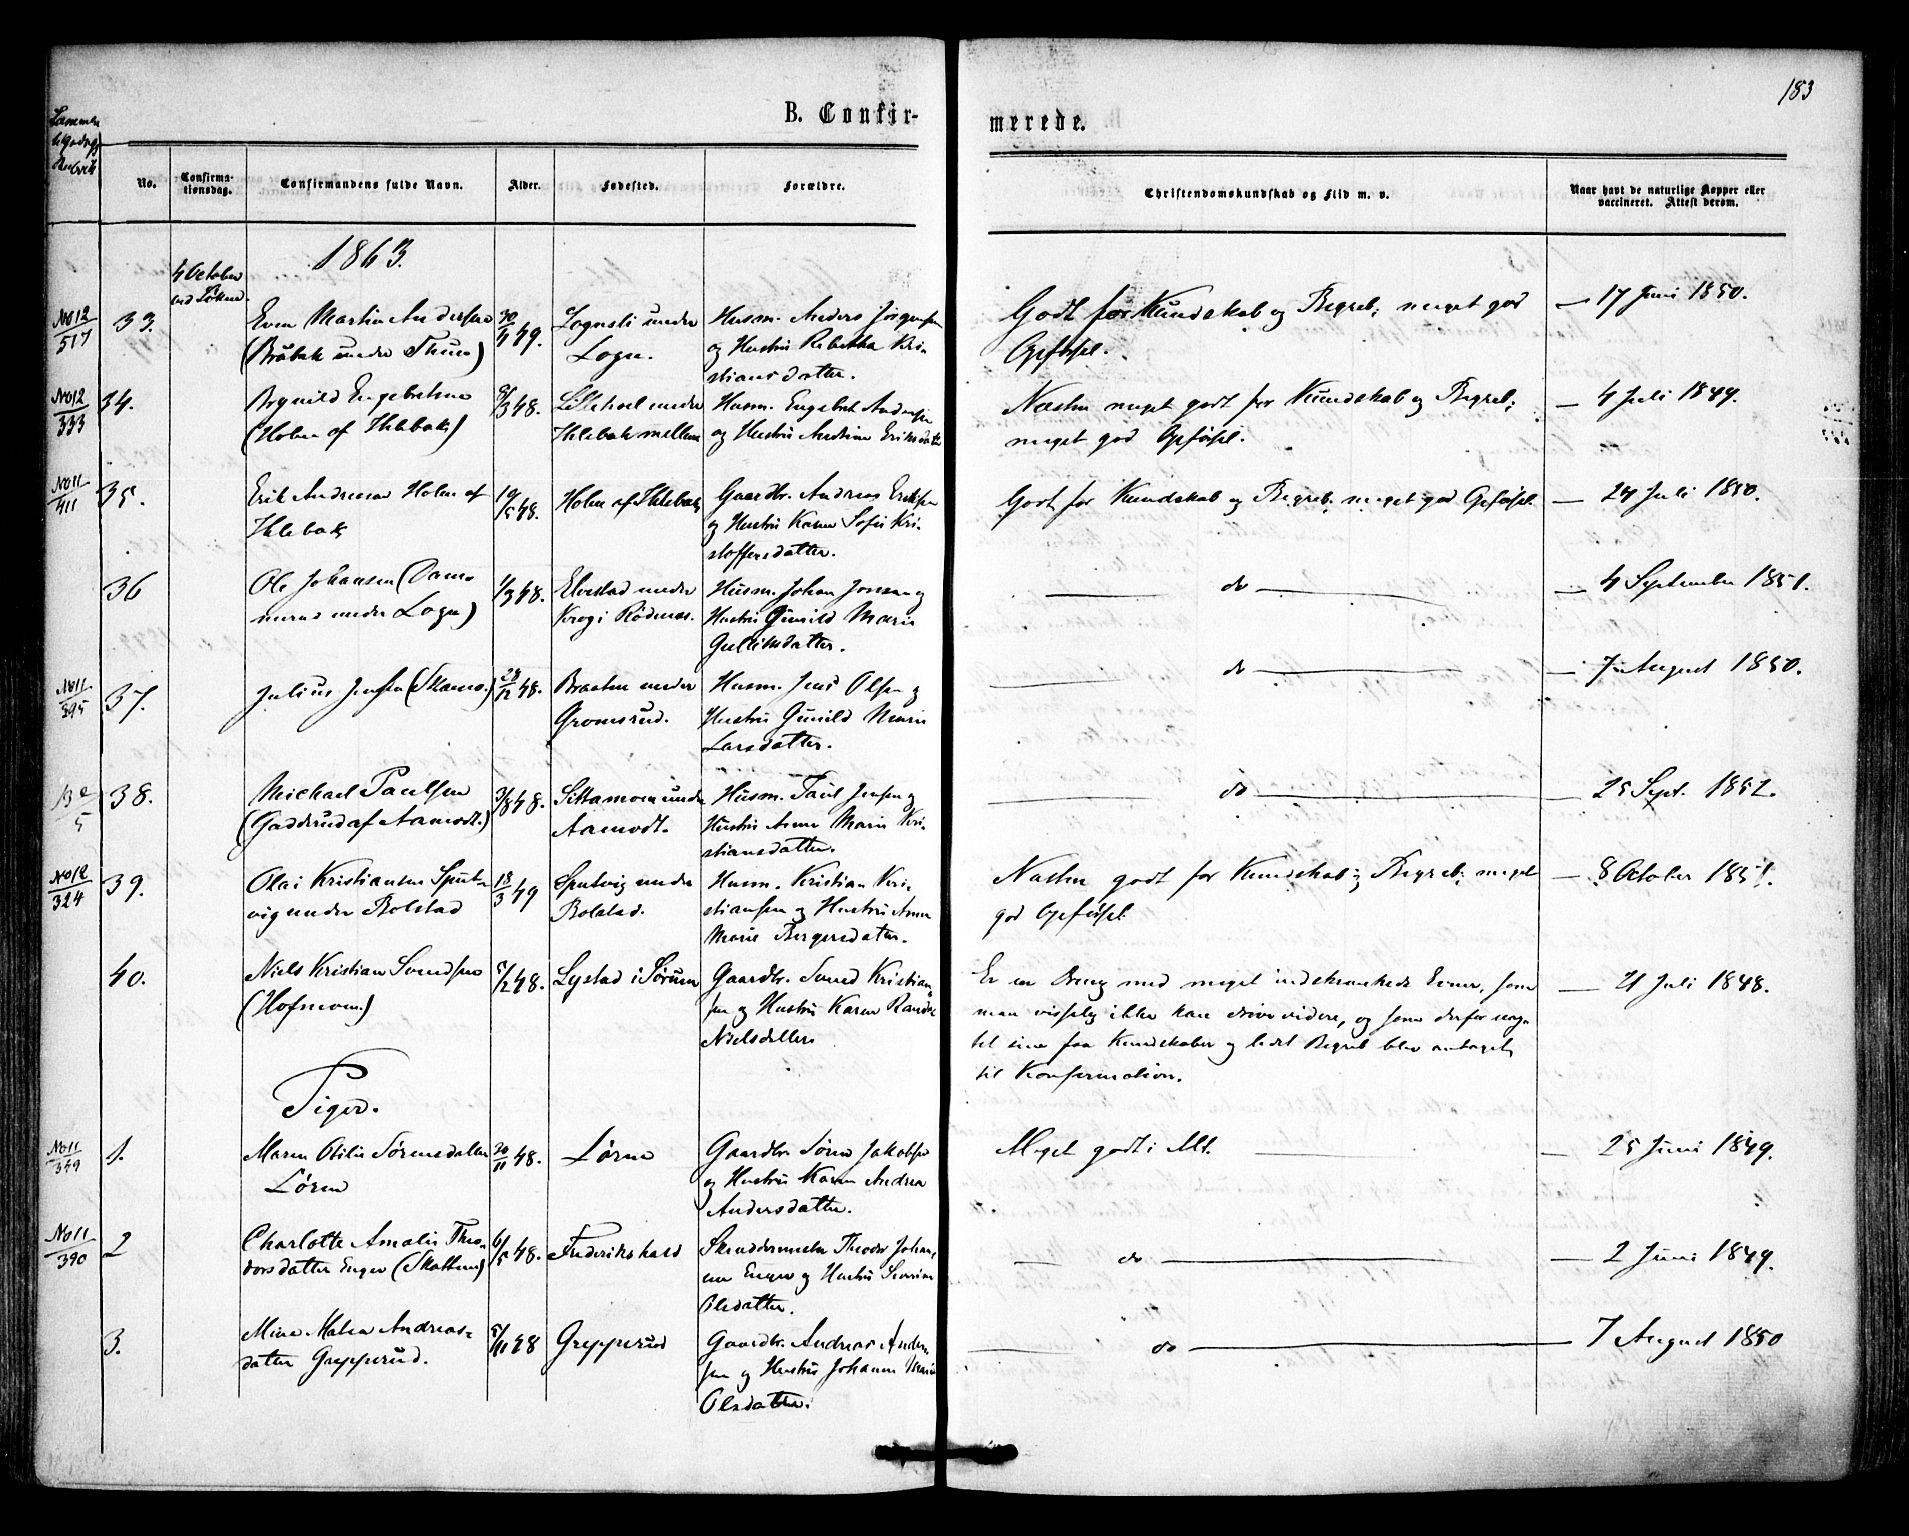 183
B. Confir-
merede.
No.
Confirma-
tionsdag.
Confirmandens fulde Navn.
Alder.
Fødested.
Forældre.
Christendomskundskab og Flid m. v.
Naar havt de naturlige Kopper eller
vaccineret. Attest derom.
1863.
4 October
No 12
517
33.
Even Martin Andersen
(Bråtek under Thuse)
20/4 49.
Lognsli under
Logn.
Husm. Anders Jørgensen
og Hustru Rebekka Kri-
stiansdatter.
Godt for Kundskab og Begreb; meget god
Opførsel.
— 17 Juni 1850.
No 12
333
34.
Brynild Engebretsen
(Holm af Ihlebæk)
9/3 48.
Lillehoel under
Ihlebæk mellem
Husm. Engebret Andersen
og Hustru Andrine Eriksdatter
Næsten meget godt for Kundskab og Begreb;
meget god Opførsel.
— 4 Juli 1849.
No 11
411
35.
Erik Andreasen Holm af
Ihlebæk
19/5 48.
Holm af Ihlebæk
Gaardbr. Andreas Eriksen
og Hustru Karen Sofie Kri-
stoffersdatter.
Godt for Kundskab og Begreb. meget god Opførsel.
— 24 Juli 1850.
36
Ole Johansen (Dam-
merud under Logn)
1/3 48.
Elvestad under
Krog i Rødenæs.
Husm. Johan Jonsen og
Hustru Gunild Marie
Gulliksdatter.
do
— 4 September 1851.
No 11
395
37.
Julius Jensen (Skams.)
28/12 48.
Braaten under
Gromsrud.
Husm. Jens Olsen og
Hustru Gunild Marie
Larsdatter.
do
— 7 August 1850.
5
38.
Michael Paulsen
(Gadderud af Aamodt.)
3/8 48.
Sittamoen under
Aamodt.
Husm. Paul Jensen og
Hustru Anne Marie Kri-
stiansdatter.
do
— 25 Sept. 1852.
No 12
324
39.
Olai Kristiansen Sput-
vig under Bolstad
18/3 49
Sputvig under
Bolstad.
Husm. Kristian Kri-
stiansen og Hustru Anne
Marie Bergersdatter.
Næsten godt for Kundskab og Begreb; meget
god Opførsel
— 8 October 1851.
40.
Niels Kristian Svendsen
(Hofmoen.)
5/2 48.
Lystad i Sørum
Gaardbr. Svend Kristian-
sen og Hustru Karen Randine
Nielsdatter
Er en Dreng med meget indskrænkede Evner, som
man visselig ikke kan drive videre, og som derfor uag-
tet sine faa Kundskaber og lidet Begreb blev antaget
til Konfirmation.
— 21 Juli 1848.
Piger.
No 11
349
1.
Maren Otilie Sørensdatter
Løren
20/11 48.
Løren
Gaardbr. Søren Jakobsen
og Hustru Maren Andrea
Andersdatter.
Meget godt i Alt.
— 25 Juni 1849.
No 11
390
2
Charlotte Amalie Theo-
dorsdatter Enger (Skottum)
6/5 48.
Frederikshald
Skreddermester Theodor Johan-
nes Enger og Hustru Severine
Olsdatter.
do
— 2 Juni 1849.
3.
Mine Malea Andreas-
datter Grepperud.
5/11 48
Grepperud
Gaardbr. Andreas Ander-
sen og Hustru Johanne Marie
Olsdatter.
do
— 7 August 1850